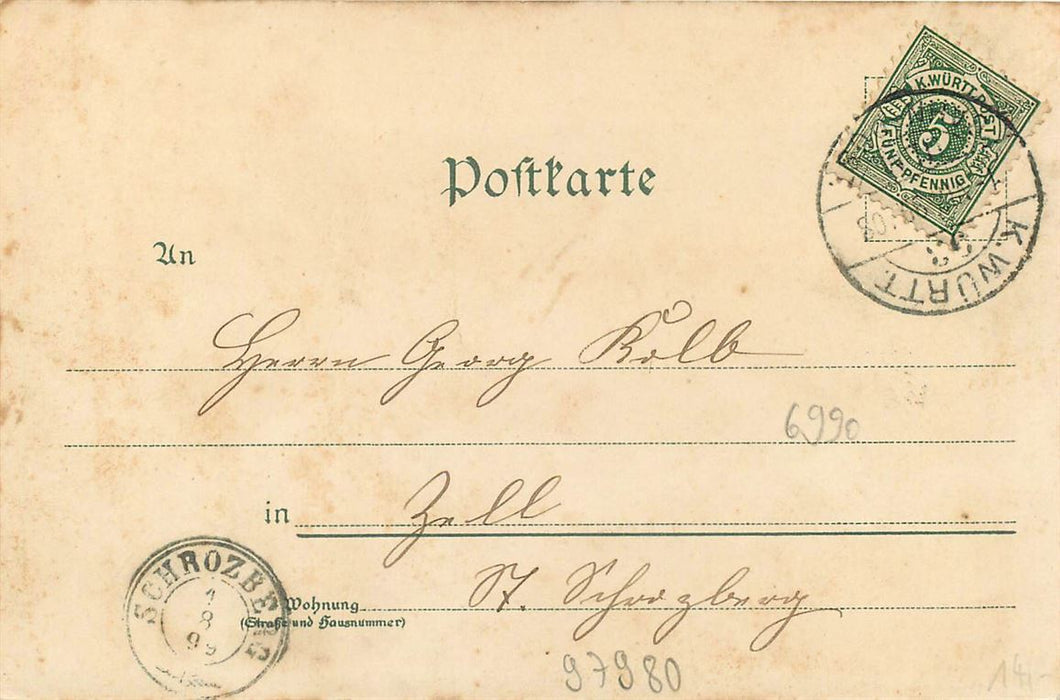 K. WÜRTT. POST
5
FÜNF PFENNIG
Postkarte
K. WÜRTT.
An
Herrn Georg Kolb
6990
in Zell
SCHROZBERG
1
8
99
Wohnung St. Schrozberg
(Straße und Hausnummer)
97980
14,-